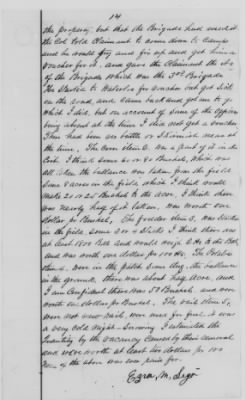 14
the property, but that the Brigade had used it
the Col told Claimant to come down to Camp
and he would try and fix up and get him a
Voucher for it, and gave the Claimant the No
of the Brigade which was the 3rd Brigade
He started to for voucher but got sick
on the road, and came back and got me to go
which I did, but on account of some of the officers
being absent at the time I did not get a voucher
There had been a battle or Skirmish near at
the time. The Corn item 6. was a part of it in the
Crib. I think some 60 or 80 Bushels, which was
all taken the ballance was taken from the field
some 8 acres in the field, which I think would
make 20 or 25 Bushels to the acre. I think there
was nearly half of it taken, was worth one
dollar per Bushel. The fodder item 5, was stacked
in the field some 3 or 4 Stacks I think there was
at least 1800 Bdls and would weigh 2 lbs to the Bdl
and was worth one dollar per 100 lbs. The Potatoes
item , were in the patch some dug, the ballance
in the ground, there was about half acre and
I am confident there was 50 Bushels and were
worth one dollar per Bushel. The rails item 8,
were not new rails, were used for fire. It was
a very cold night - Snowing I estimated the
quantity by the vacancy caused by their removal
and were worth at least two dollars per 100
None of the above was ever paid for.
Ezra M.